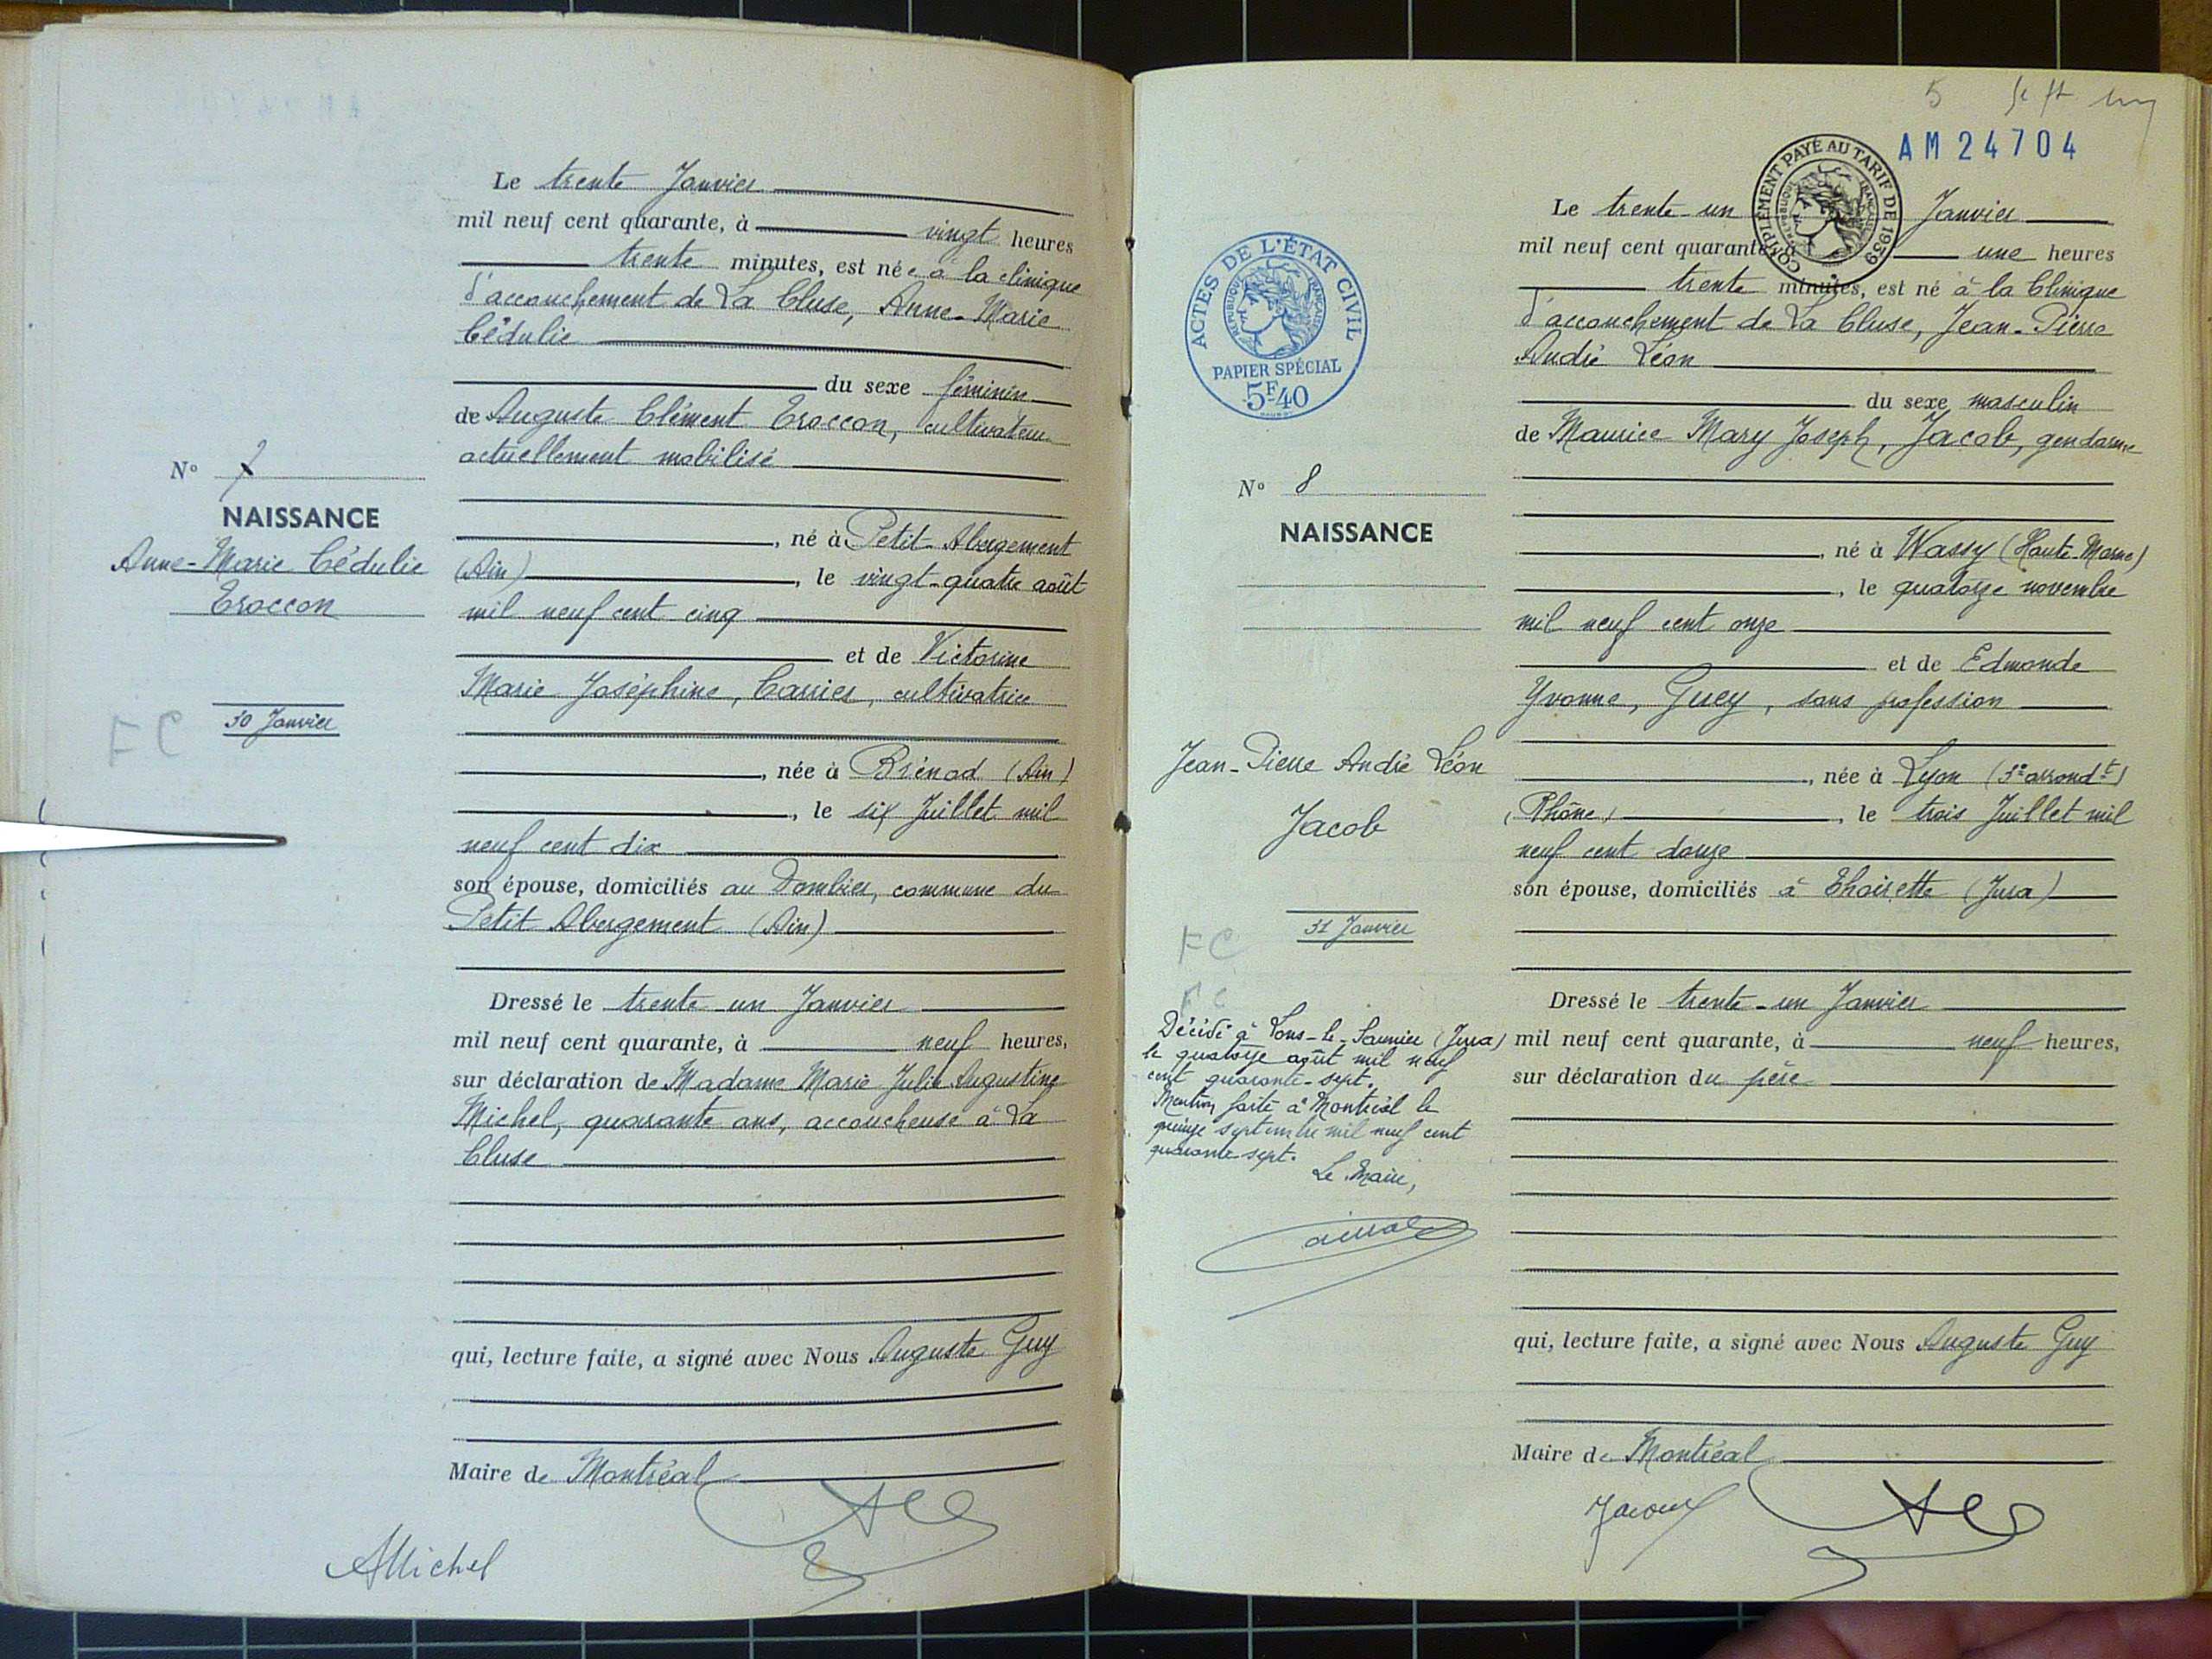 Le trente Janvier
mil neuf cent quarante, à vingt heures
trente minutes, est née à la clinique
d'accouchement de La Cluse, Anne-Marie
Cédulie
du sexe féminin
de Auguste Clément Troccon, cultivateur
actuellement mobilisé
N° 7
NAISSANCE
Anne-Marie Cédulie
Troccon
30 Janvier
FC
, né à Petit-Abergement
(Ain), le vingt-quatre août
mil neuf cent cinq
et de Victorine
Marie Joséphine, Carrier, cultivatrice
, née à Brénod (Ain)
, le six Juillet mil
neuf cent dix
son épouse, domiciliés au Dombier, commune du
Petit Abergement (Ain)
Dressé le trente-un Janvier
mil neuf cent quarante, à neuf heures,
sur déclaration de Madame Marie Julie Augustine
Michel, quarante ans, accoucheuse à La
Cluse
qui, lecture faite, a signé avec Nous Auguste Guy
Maire de Montréal
AMichel
5
AM 24704
COMPLÉMENT PAYÉ AU TARIF DE 1939
ACTES DE L'ÉTAT CIVIL
RÉPUBLIQUE FRANÇAISE
PAPIER SPÉCIAL
5F40
Le trente-un Janvier
mil neuf cent quarante, à une heures
trente minutes, est né à la Clinique
d'accouchement de La Cluse, Jean-Pierre
André Léon
du sexe masculin
de Maurice Mary Joseph, Jacob, gendarme
N° 8
NAISSANCE
Jean-Pierre André Léon
Jacob
31 Janvier
FC
FC
Décédé à Lons-le-Saunier (Jura)
le quatorze août mil neuf
cent quarante-sept.
Mention faite à Montréal le
quinze septembre mil neuf cent
quarante-sept.
Le Maire,
, né à Wassy (Haute-Marne)
, le quatorze novembre
mil neuf cent onze
et de Edmonde
Yvonne, Guey, sans profession
, née à Lyon (3e arrondt)
(Rhône), le trois Juillet mil
neuf cent douze
son épouse, domiciliés à Thoirette (Jura)
Dressé le trente-un Janvier
mil neuf cent quarante, à neuf heures,
sur déclaration du père
qui, lecture faite, a signé avec Nous Auguste Guy
Maire de Montréal
Jacob